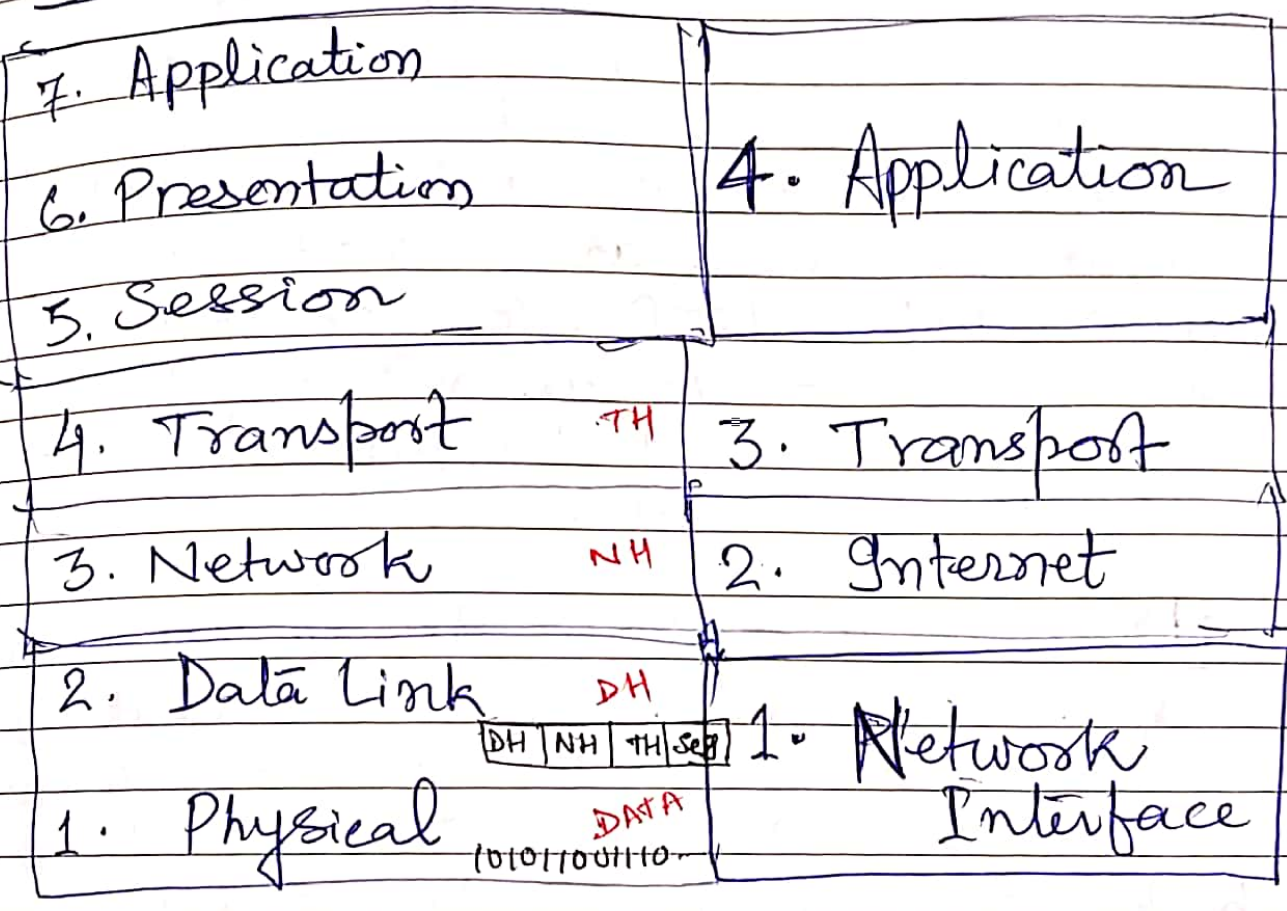 7. Application
6. Presentation
5. Session
4. Transport TH
3. Network NH
2. Data Link DH
DH NH TH Seg
1. Physical DATA
101011001110
4. Application
3. Transport
2. Internet
1. Network
Interface